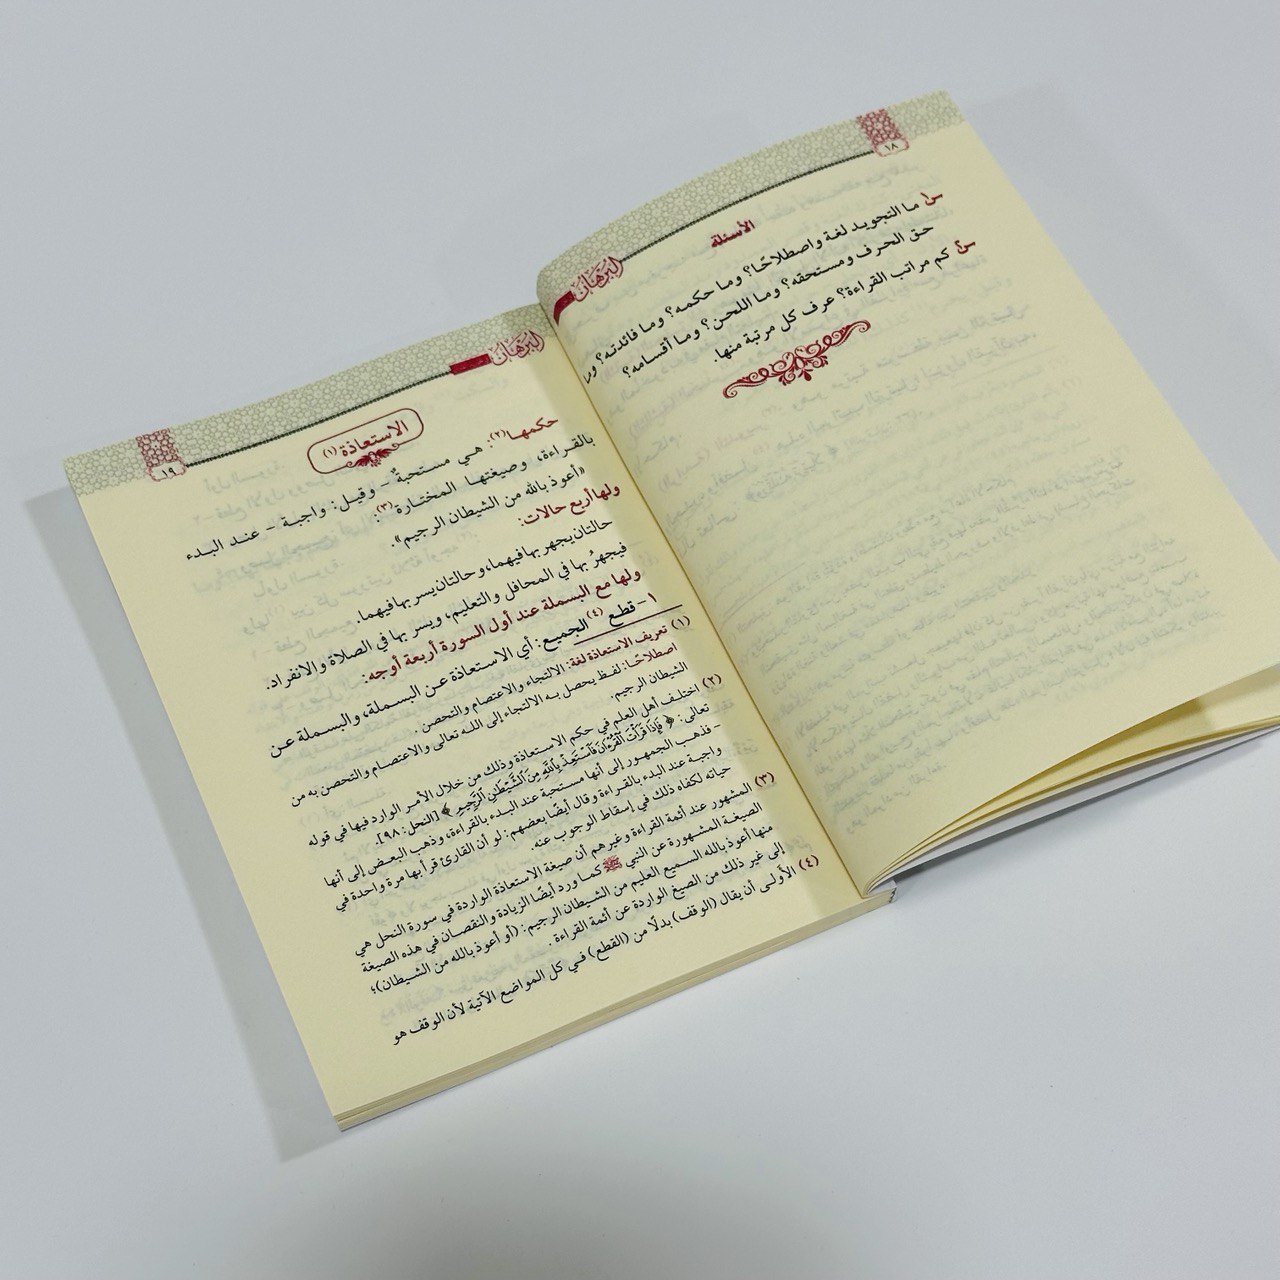 ١٨
البرهان
الأسئلة
س١ ما التجويد لغة واصطلاحًا؟ وما حكمه؟ وما فائدته؟ وما
حق الحرف ومستحقه؟ وما اللحن؟ وما أقسامه؟
س٢ كم مراتب القراءة؟ عرف كل مرتبة منها.
البرهان
١٩
الاستعاذة (١)
حكمها(٢): هي مستحبةٌ - وقيل: واجبة - عند البدء
بالقراءة، وصيغتها المختارة(٣):
«أعوذ بالله من الشيطان الرجيم».
ولها أربع حالات:
حالتان يجهر بها فيهما، وحالتان يسر بها فيهما.
فيجهرُ بها في المحافل والتعليم، ويسر بها في الصلاة والانفراد.
ولها مع البسملة عند أول السورة أربعة أوجه:
١- قطع (٤) الجميع: أي الاستعاذة عن البسملة، والبسملة عن
(١) تعريف الاستعاذة لغة: الالتجاء والاعتصام والتحصن.
اصطلاحًا: لفظ يحصل به الالتجاء إلى الله تعالى والاعتصام والتحصن به من
الشيطان الرجيم.
(٢) اختلف أهل العلم في حكم الاستعاذة وذلك من خلال الأمر الوارد فيها في قوله
تعالى: ﴿ فَإِذَا قَرَأْتَ ٱلْقُرْءَانَ فَٱسْتَعِذْ بِٱللَّهِ مِنَ ٱلشَّيْطَٰنِ ٱلرَّجِيمِ ﴾ [النحل: ٩٨].
- فذهب الجمهور إلى أنها مستحبة عند البدء بالقراءة، وذهب البعض إلى أنها
واجبة عند البدء بالقراءة وقال أيضًا بعضهم: لو أن القارئ قرأ بها مرة واحدة في
حياته لكفاه ذلك في إسقاط الوجوب عنه.
(٣) المشهور عند أئمة القراءة وغيرهم أن صيغة الاستعاذة الواردة في سورة النحل هي
الصيغة المشهورة عن النبي ﷺ كما ورد أيضًا الزيادة والنقصان في هذه الصيغة
منها أعوذ بالله السميع العليم من الشيطان الرجيم: (أو أعوذ بالله من الشيطان)؛
إلى غير ذلك من الصيغ الواردة عن أئمة القراءة .
(٤) الأَولى أن يقال (الوقف) بدلًا من (القطع) في كل المواضع الآتية لأن الوقف هو